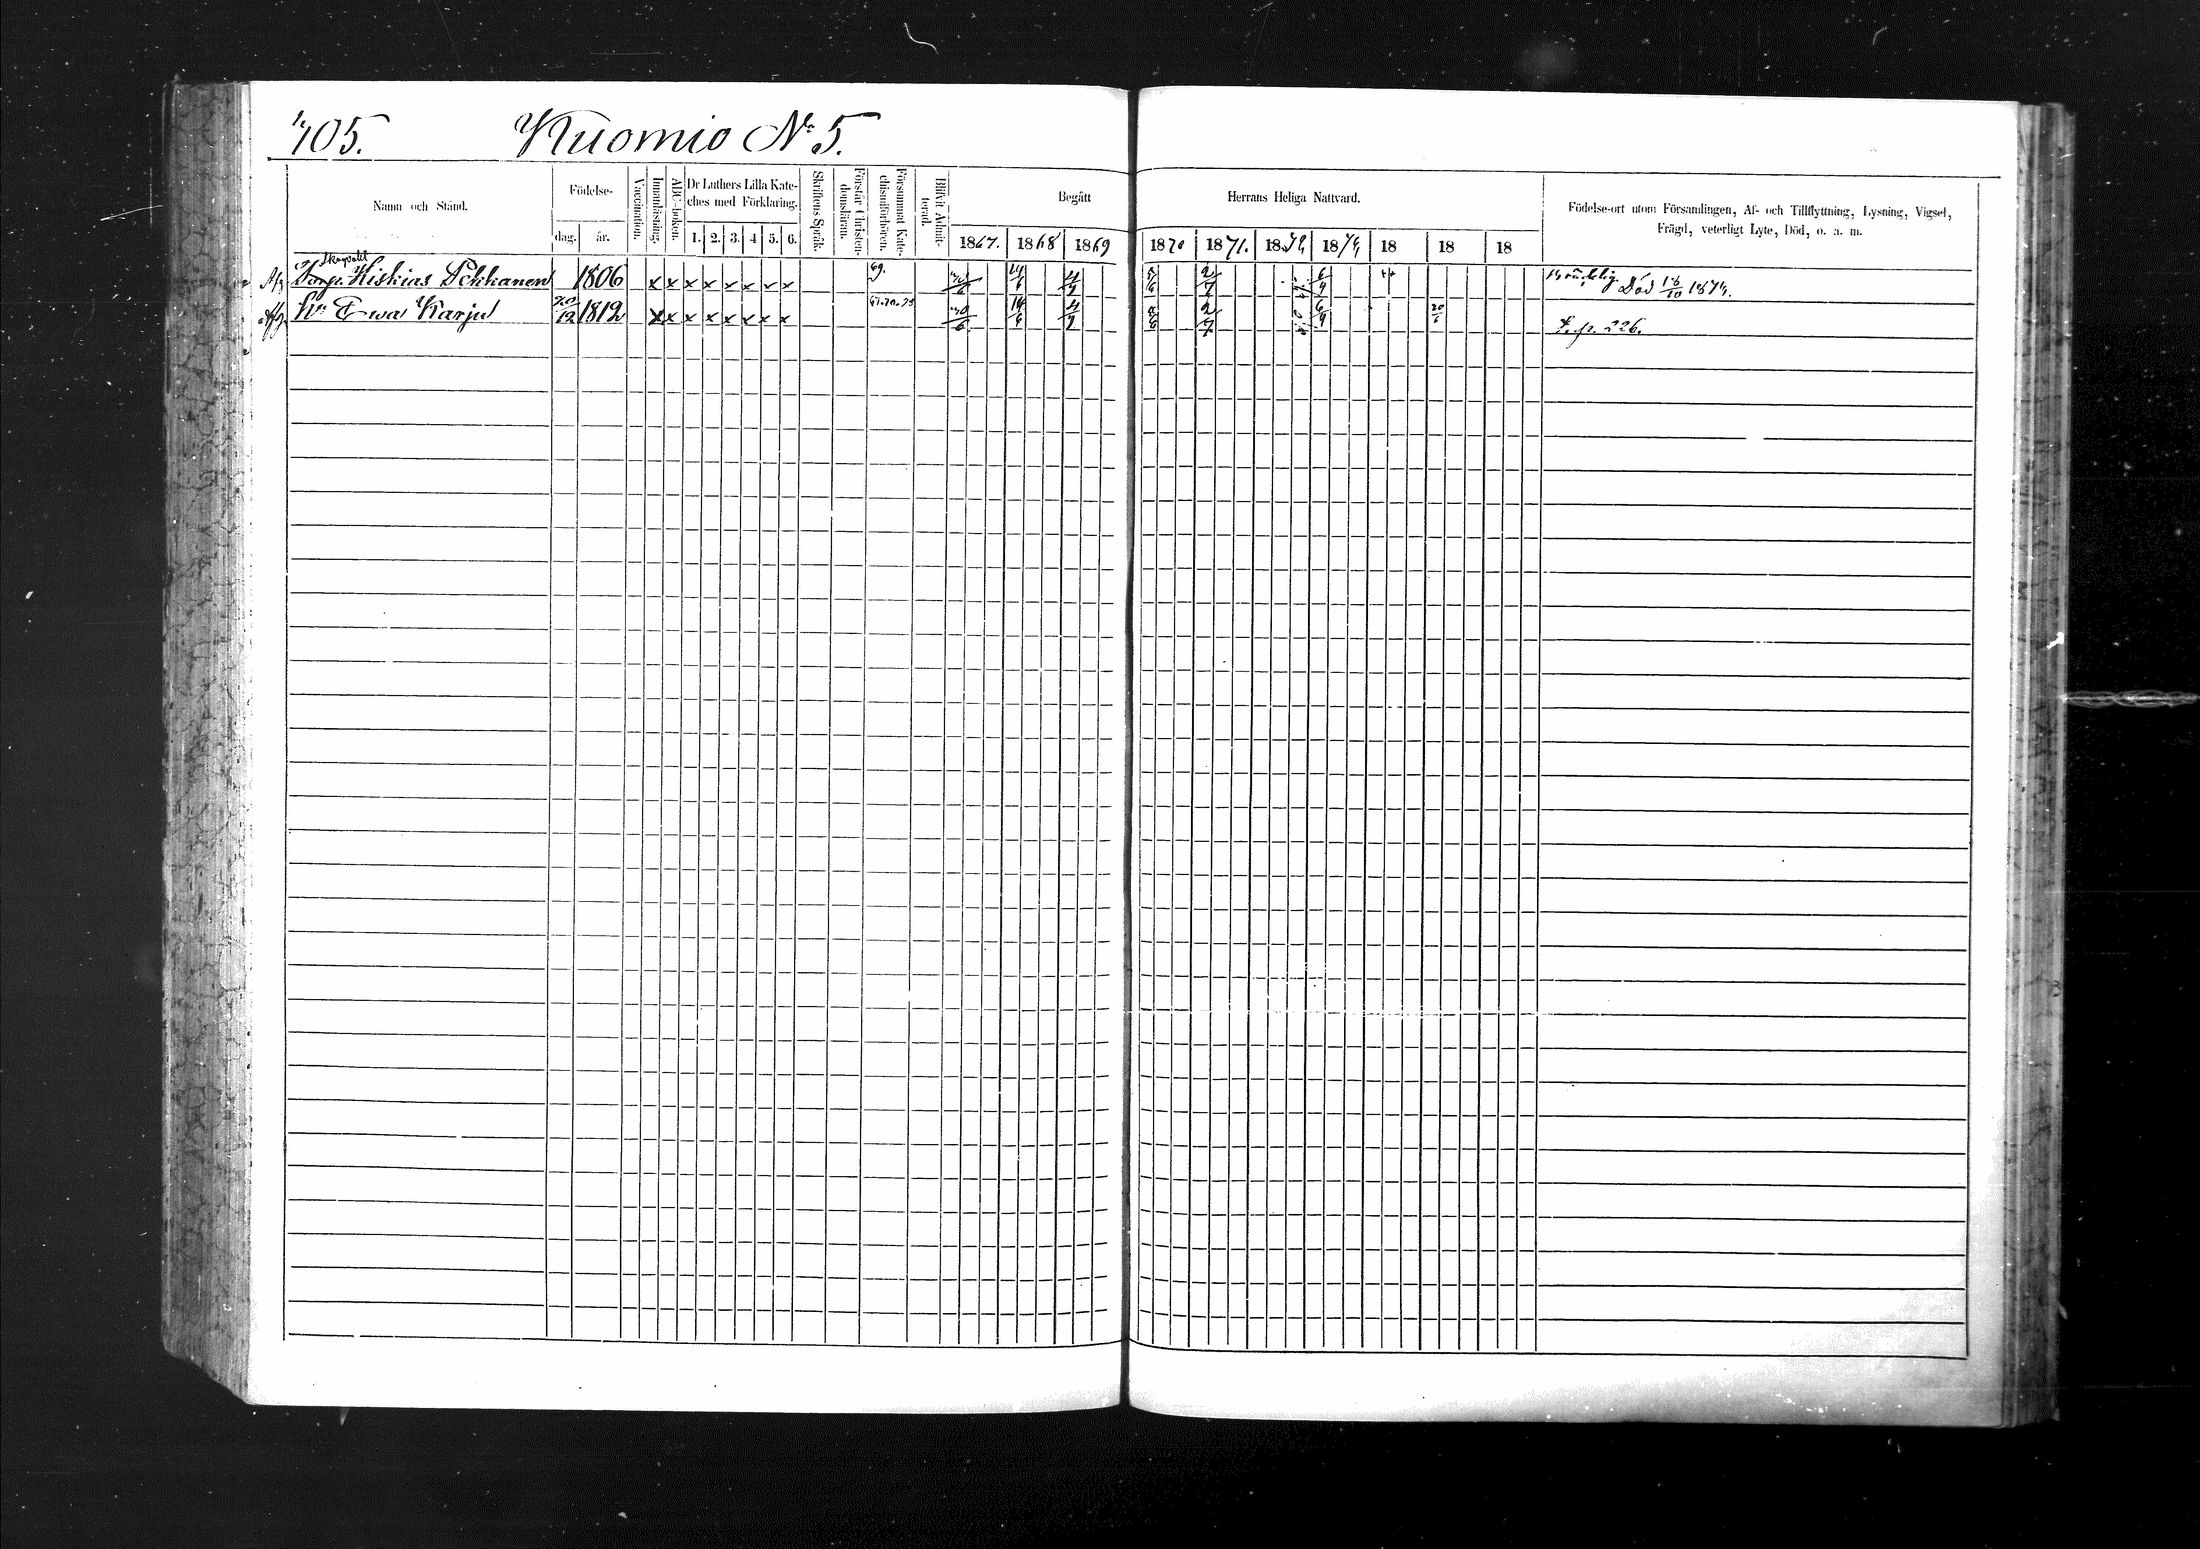 405. Kuomio No 5.
Namn och Stånd.
Födelse-
dag. år.
Vaccination.
Innanläsning.
ABC-boken.
Dr Luthers Lilla Kate-
ches med Förklaring.
1. 2. 3. 4 5. 6.
Skriftens Språk.
Förstår Christen-
domsläran.
Försummat Kate-
chismiförhören.
Blifvit Admit-
terad.
Begått Herrans Heliga Nattvard.
1867. 1868 1869 1870 1871. 1872 1874 18 18 18
Födelse-ort utom Församlingen, Af- och Tillflyttning, Lysning, Vigsel,
Frägd, veterligt Lyte, Död, o. a. m.
Torp. Hiskias Pekkanen 1806 x x x x x x x x 69. Död 1874.
Hu Ewa Karju 20/12 1812 x x x x x x x x 14/6 4/7 2/7 6/4 20/6 p. 226.